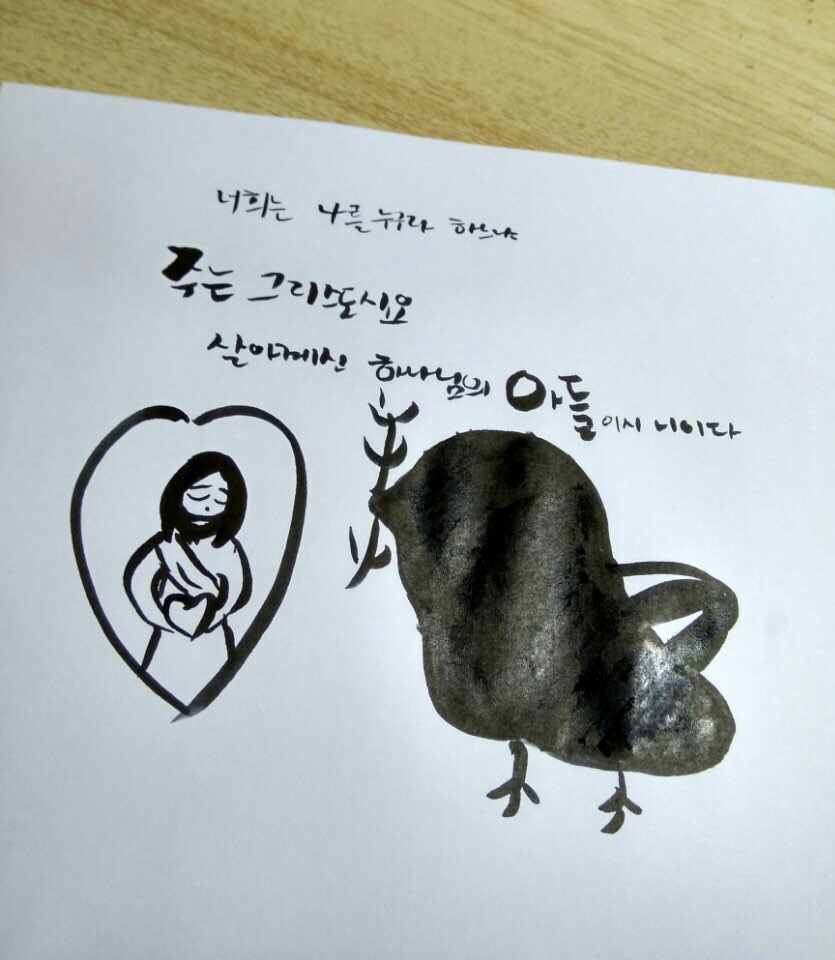 너희는 나를 누구라 하느냐
주는 그리스도시요
살아계신 하나님의 아들이시니이다